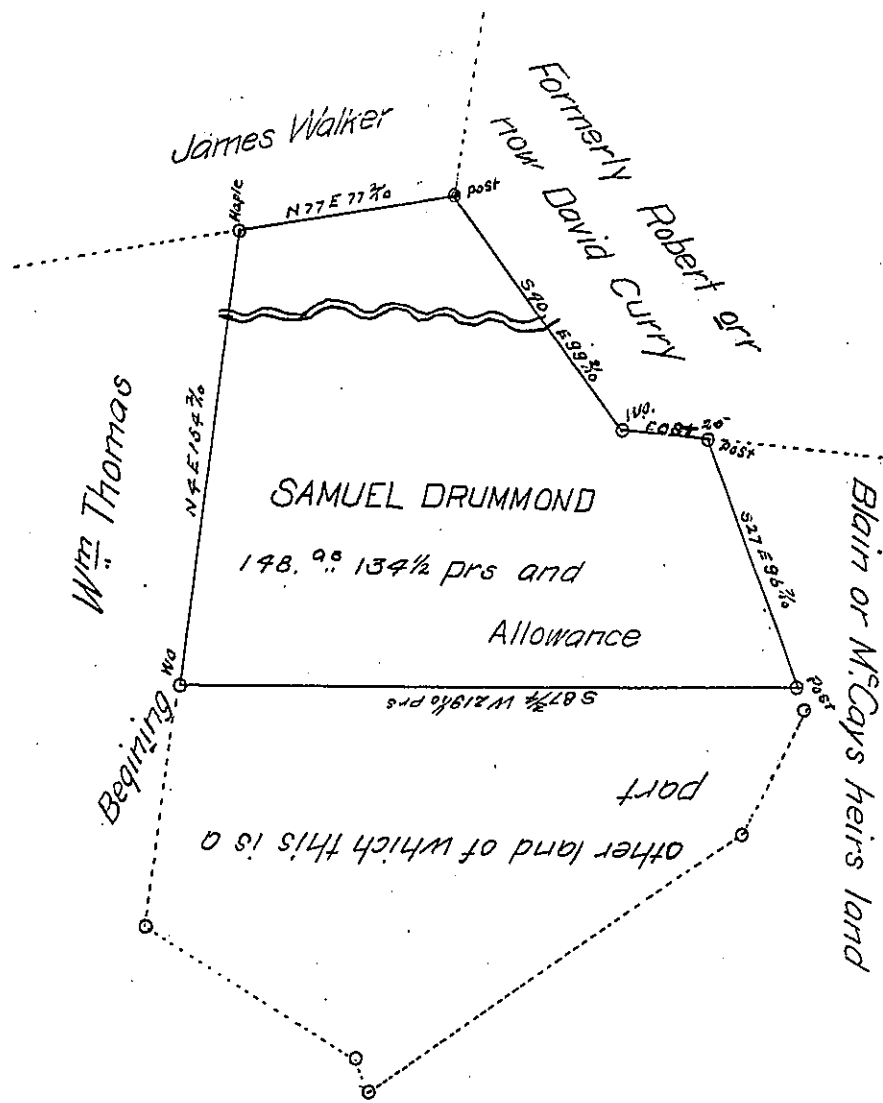 James Walker
Formerly Robert orr
now David Curry
Maple
N77E77 2/10
post
S40 E99 2/10
Wo.
20
post
N4E154 3/10
Wm Thomas
SAMUEL DRUMMOND
148. as 134½ prs and
Allowance
S27E96 7/10
Blain or McCays heirs land
Wo
Begining
post
S87¾ W219 1/10 prs
other land of which this is a
part